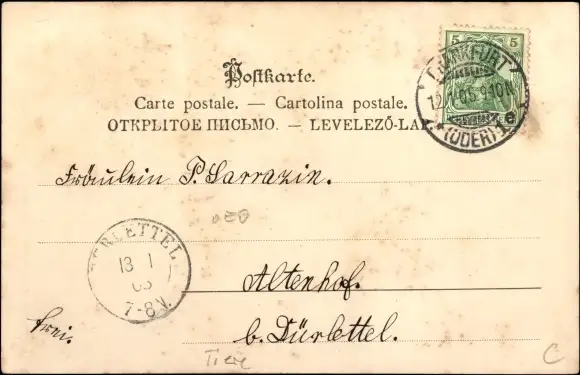 5 5
Postkarte.
Carte postale. — Cartolina postale.
ОТКРЫТОЕ ПИСЬМО. — LEVELEZŐ-LAP.
FRANKFURT
(ODER) 1
e
Fräulein P. Sarrazin.
DÜRLETTEL
13 1
7-8V.
Altenhof.
b. Dürlettel.
frei.
Tiere
C